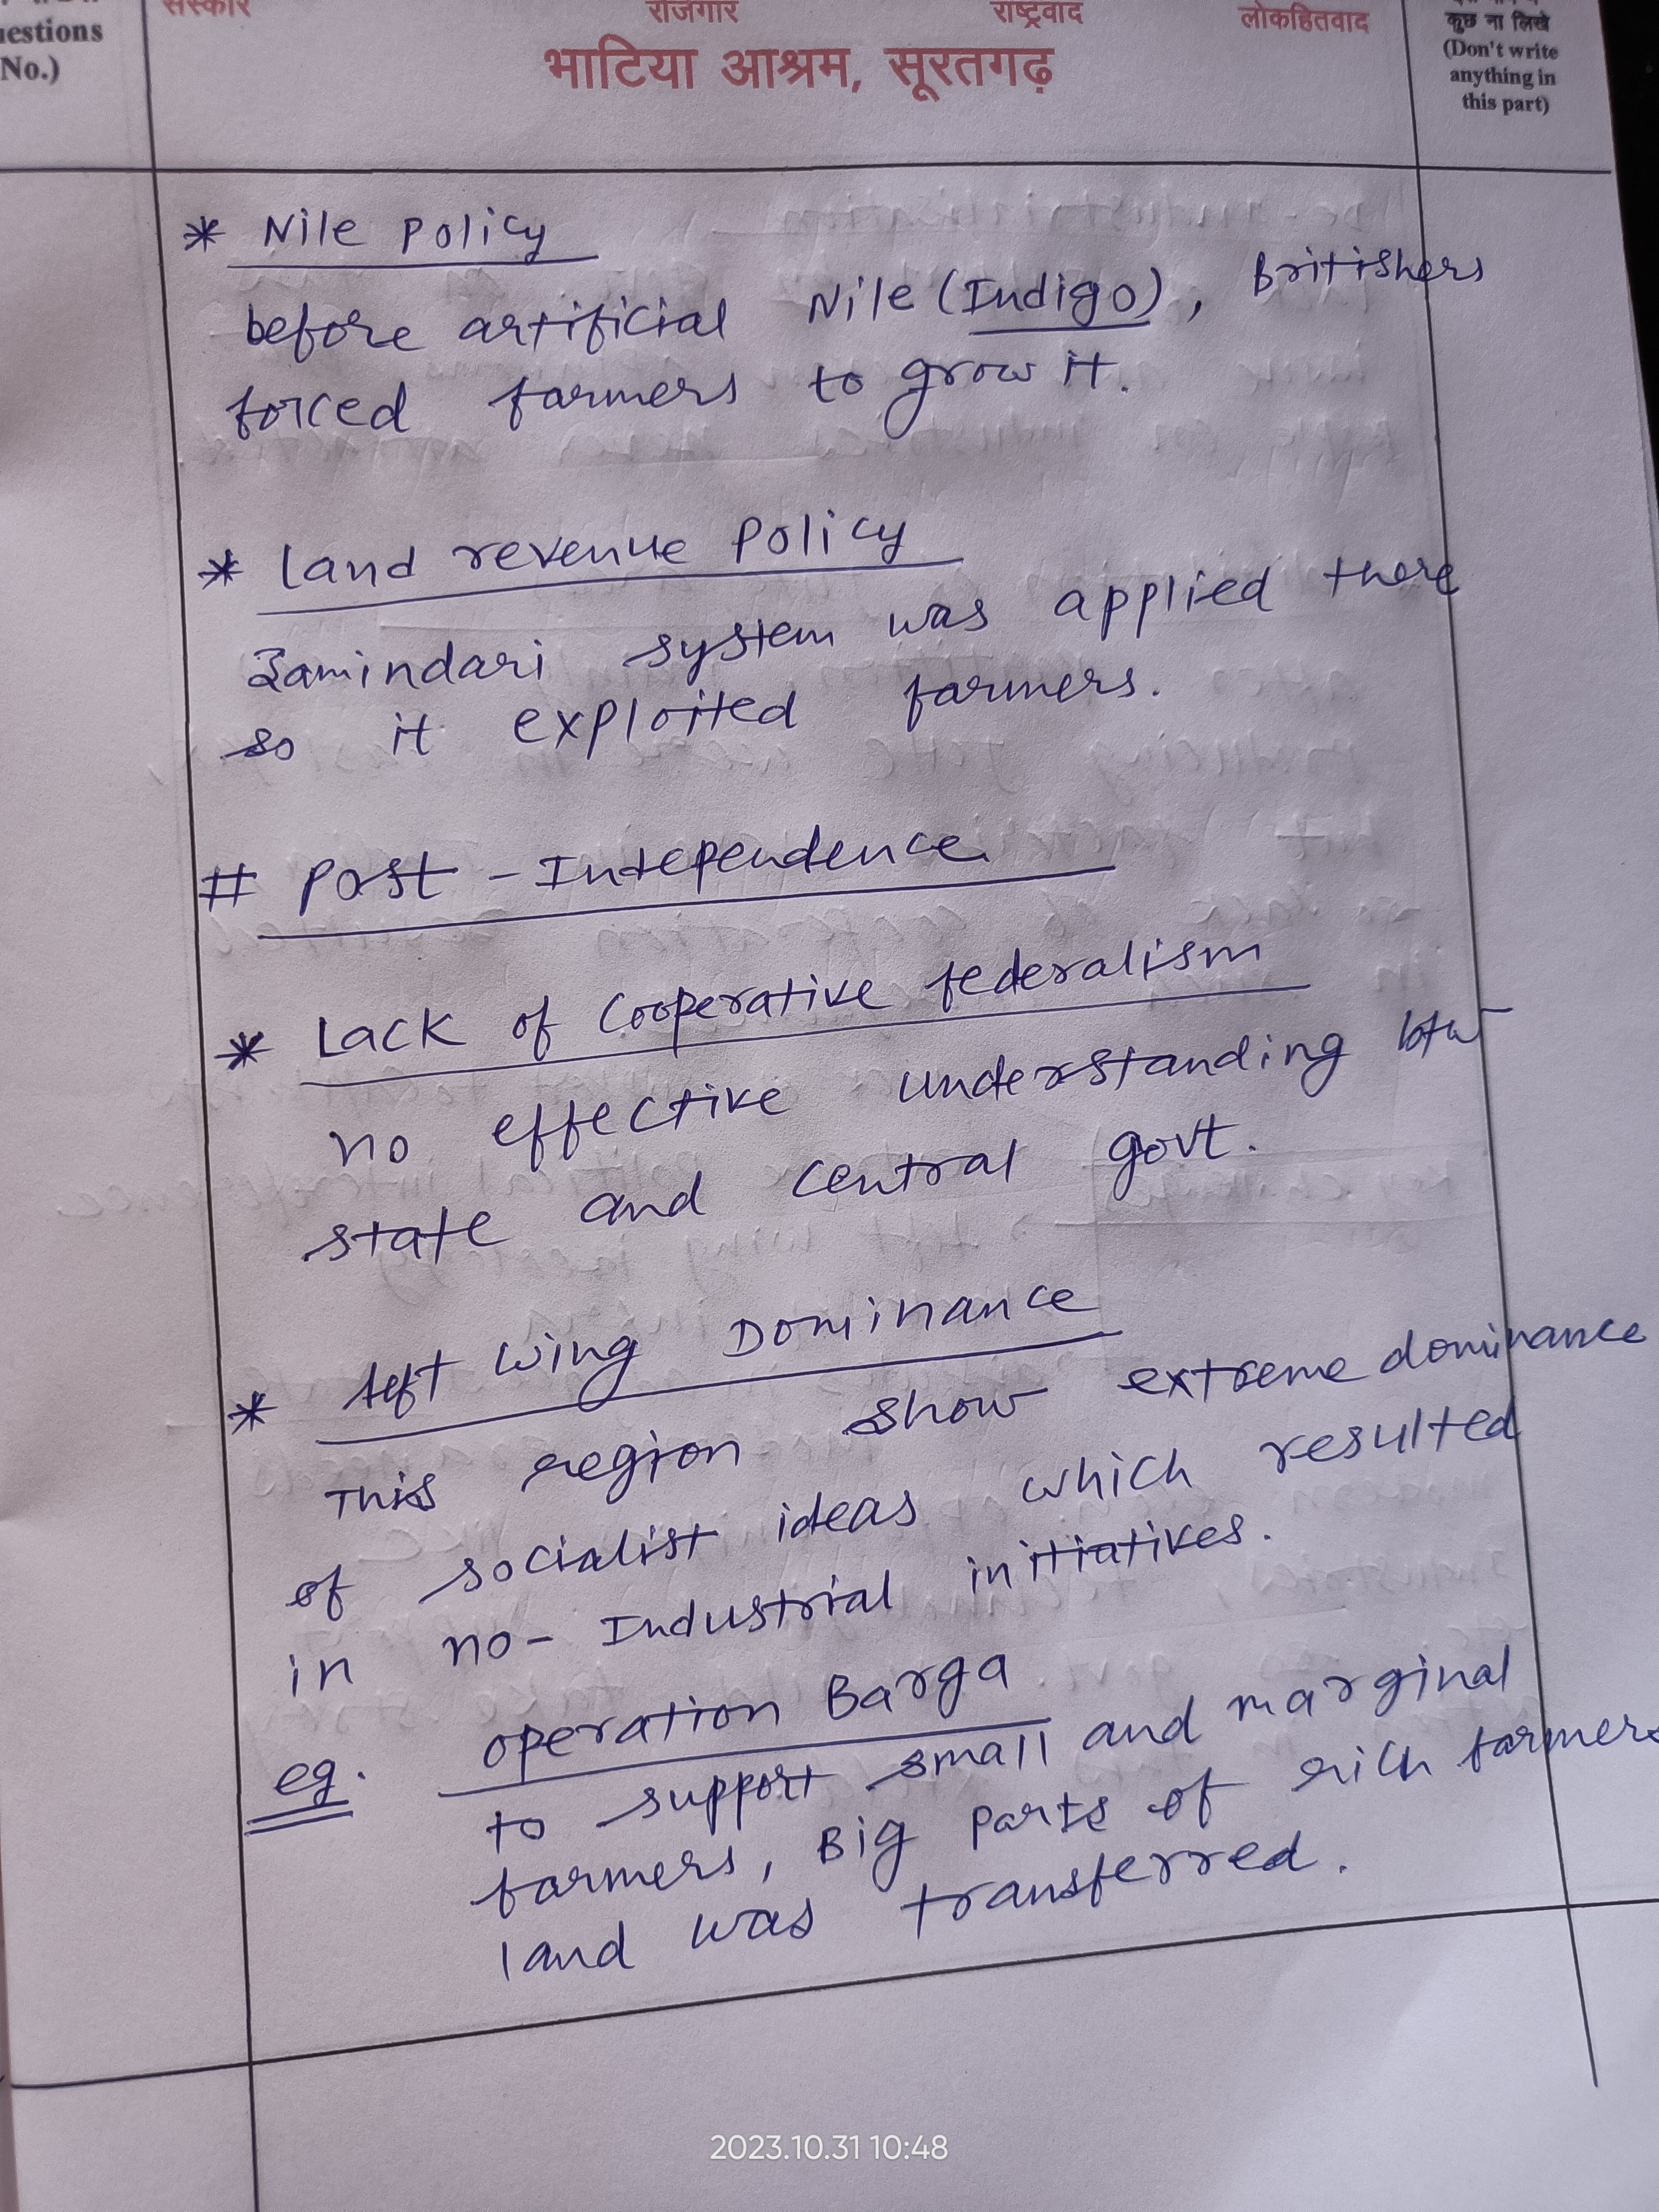 संस्कार रोजगार राष्ट्रवाद लोकहितवाद
भाटिया आश्रम, सूरतगढ़
estions
No.)
कुछ ना लिखे
(Don't write
anything in
this part)
* Nile Policy
before artificial Nile (Indigo), Britishers
forced farmers to grow it.
* Land revenue Policy
Zamindari system was applied there
so it exploited farmers.
# Post - Independence
* Lack of Cooperative federalism
no effective understanding btw
state and Central govt.
* Left Wing Dominance
This region show extreme dominance
of socialist ideas which resulted
in no- Industrial initiatives.
eg. operation Barga
to support small and marginal
farmers, Big parts of rich farmers
land was transferred.
2023.10.31 10:48